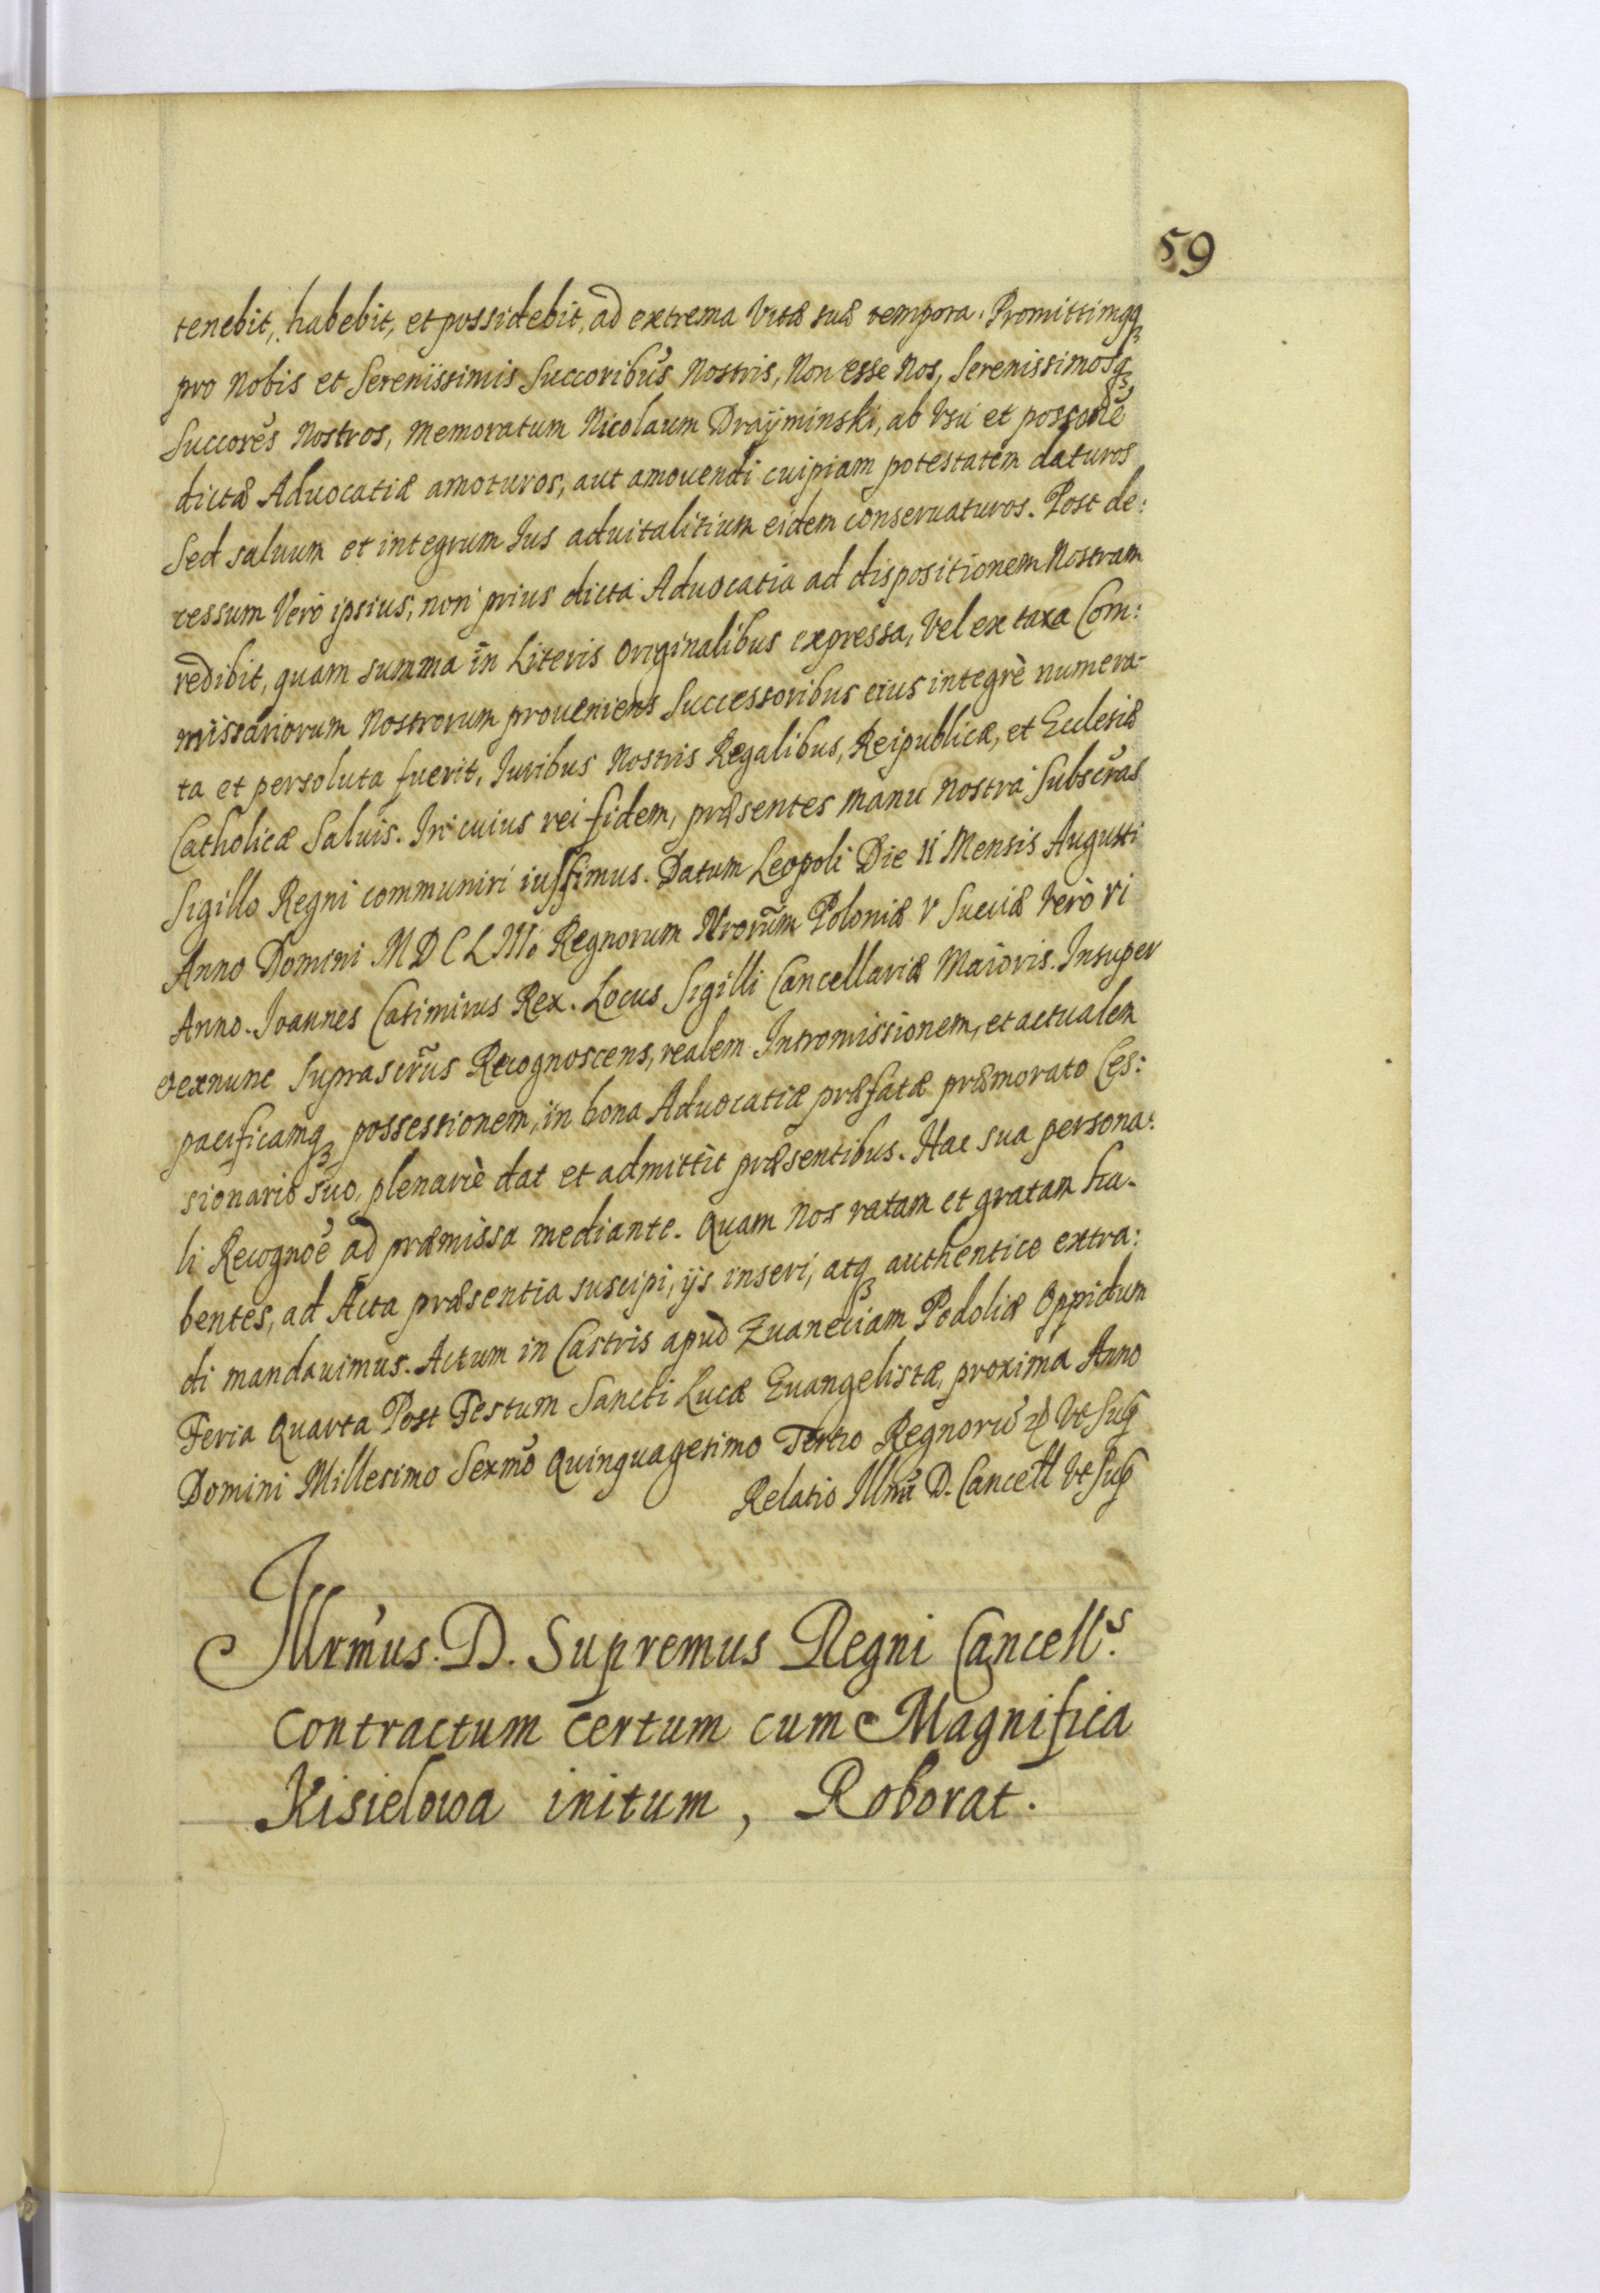 59
tenebit, habebit, et possidebit, ad extrema Vitæ suæ tempora. Promittimqꝫ
pro Nobis et Sereniissimis Succoribus Nostris, Non esse Nos, Serenissimosqꝫ
Succorés Nostros, memoratum Nicolaum Drayminski, ab Vsu et possoné
dictæ Aduocatiæ amoturos, aut amouendi cuipiam potestatem daturos
Sed saluum et integrum Ius aduitalitium eidem conseruaturos. Post de:
cessum Verò ipsius, non prius dicta Aduocatia ad dispositionem Nostram
redibit, quam summa in Literis Originalibus expressa, Vel ex taxa Com:
missariorum Nostrorum proueniens Successoribus eius integrè numera-
ta et persoluta fuerit, Iuribus Nostris Regalibus, Reipublicæ, et Ecclesiæ
Catholicæ Saluis. In cuius rei fidem, præsentes manu nostra Subscras
Sigillo Regni communiri iussimus. Datum Leopoli Die II Mensis Augusti
Anno Domini MDCLIII. Regnorum Nrorum Poloniæ V Sueciæ Verò VI
Anno. Joannes Casimirus Rex. Locus Sigilli Cancellariæ Maioris. Insuper
exnunc Suprascrus Recognoscens, realem Intromissionem, et actualem
pacificamqꝫ possessionem, in bona Aduocatiæ præfatæ præmorato Ces:
sionario suo, plenariè dat et admittit præsentibus. Hac sua persona:
li Recognoé ad præmissa mediante. Quam Nos ratam et gratam ha-
bentes, ad Acta præsentia suscipi, ijs inseri, atqꝫ authentice extra:
di mandauimus. Actum in Castris apud Zuaneciam Podoliæ Oppidum
Feria Quarta Post Festum Sancti Lucæ Euangelistæ, proxima Anno
Domini Millesimo Sexmo Quinquagesimo Tertio Regnorū Vt Sup
Relatio Illmi D. Cancell Vt Sup
Illrmus. D. Supremus Regni Cancells.
Contractum certum cum Magnifica
Kisielowa initum, Roborat.